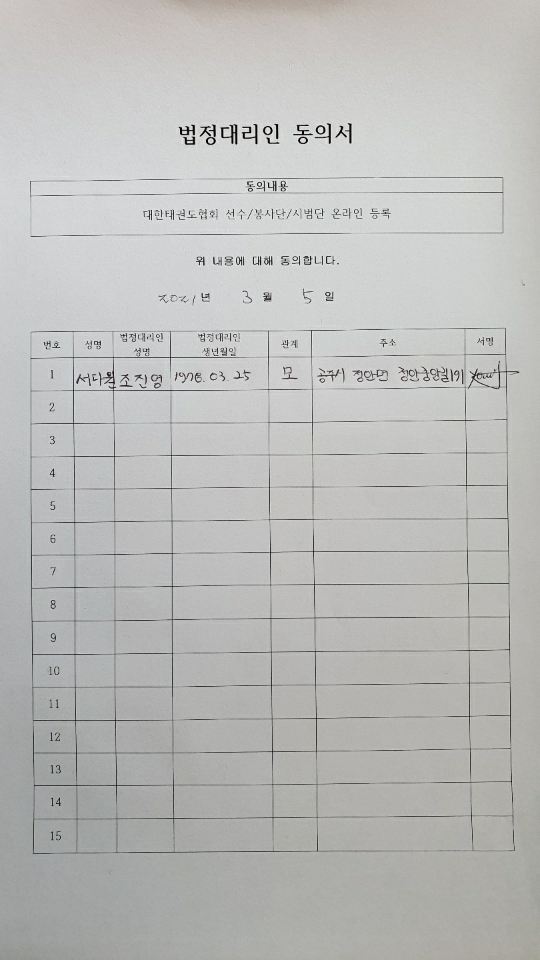 법정대리인 동의서
동의내용
대한태권도협회 선수/봉사단/시범단 온라인 등록
위 내용에 대해 동의합니다.
2021년 3월 5일
번호 성명 법정대리인 성명 법정대리인 생년월일 관계 주소 서명
1 서다월 조진영 1978.03.25 모 공주시 정안면 정안중앙길191
2
3
4
5
6
7
8
9
10
11
12
13
14
15